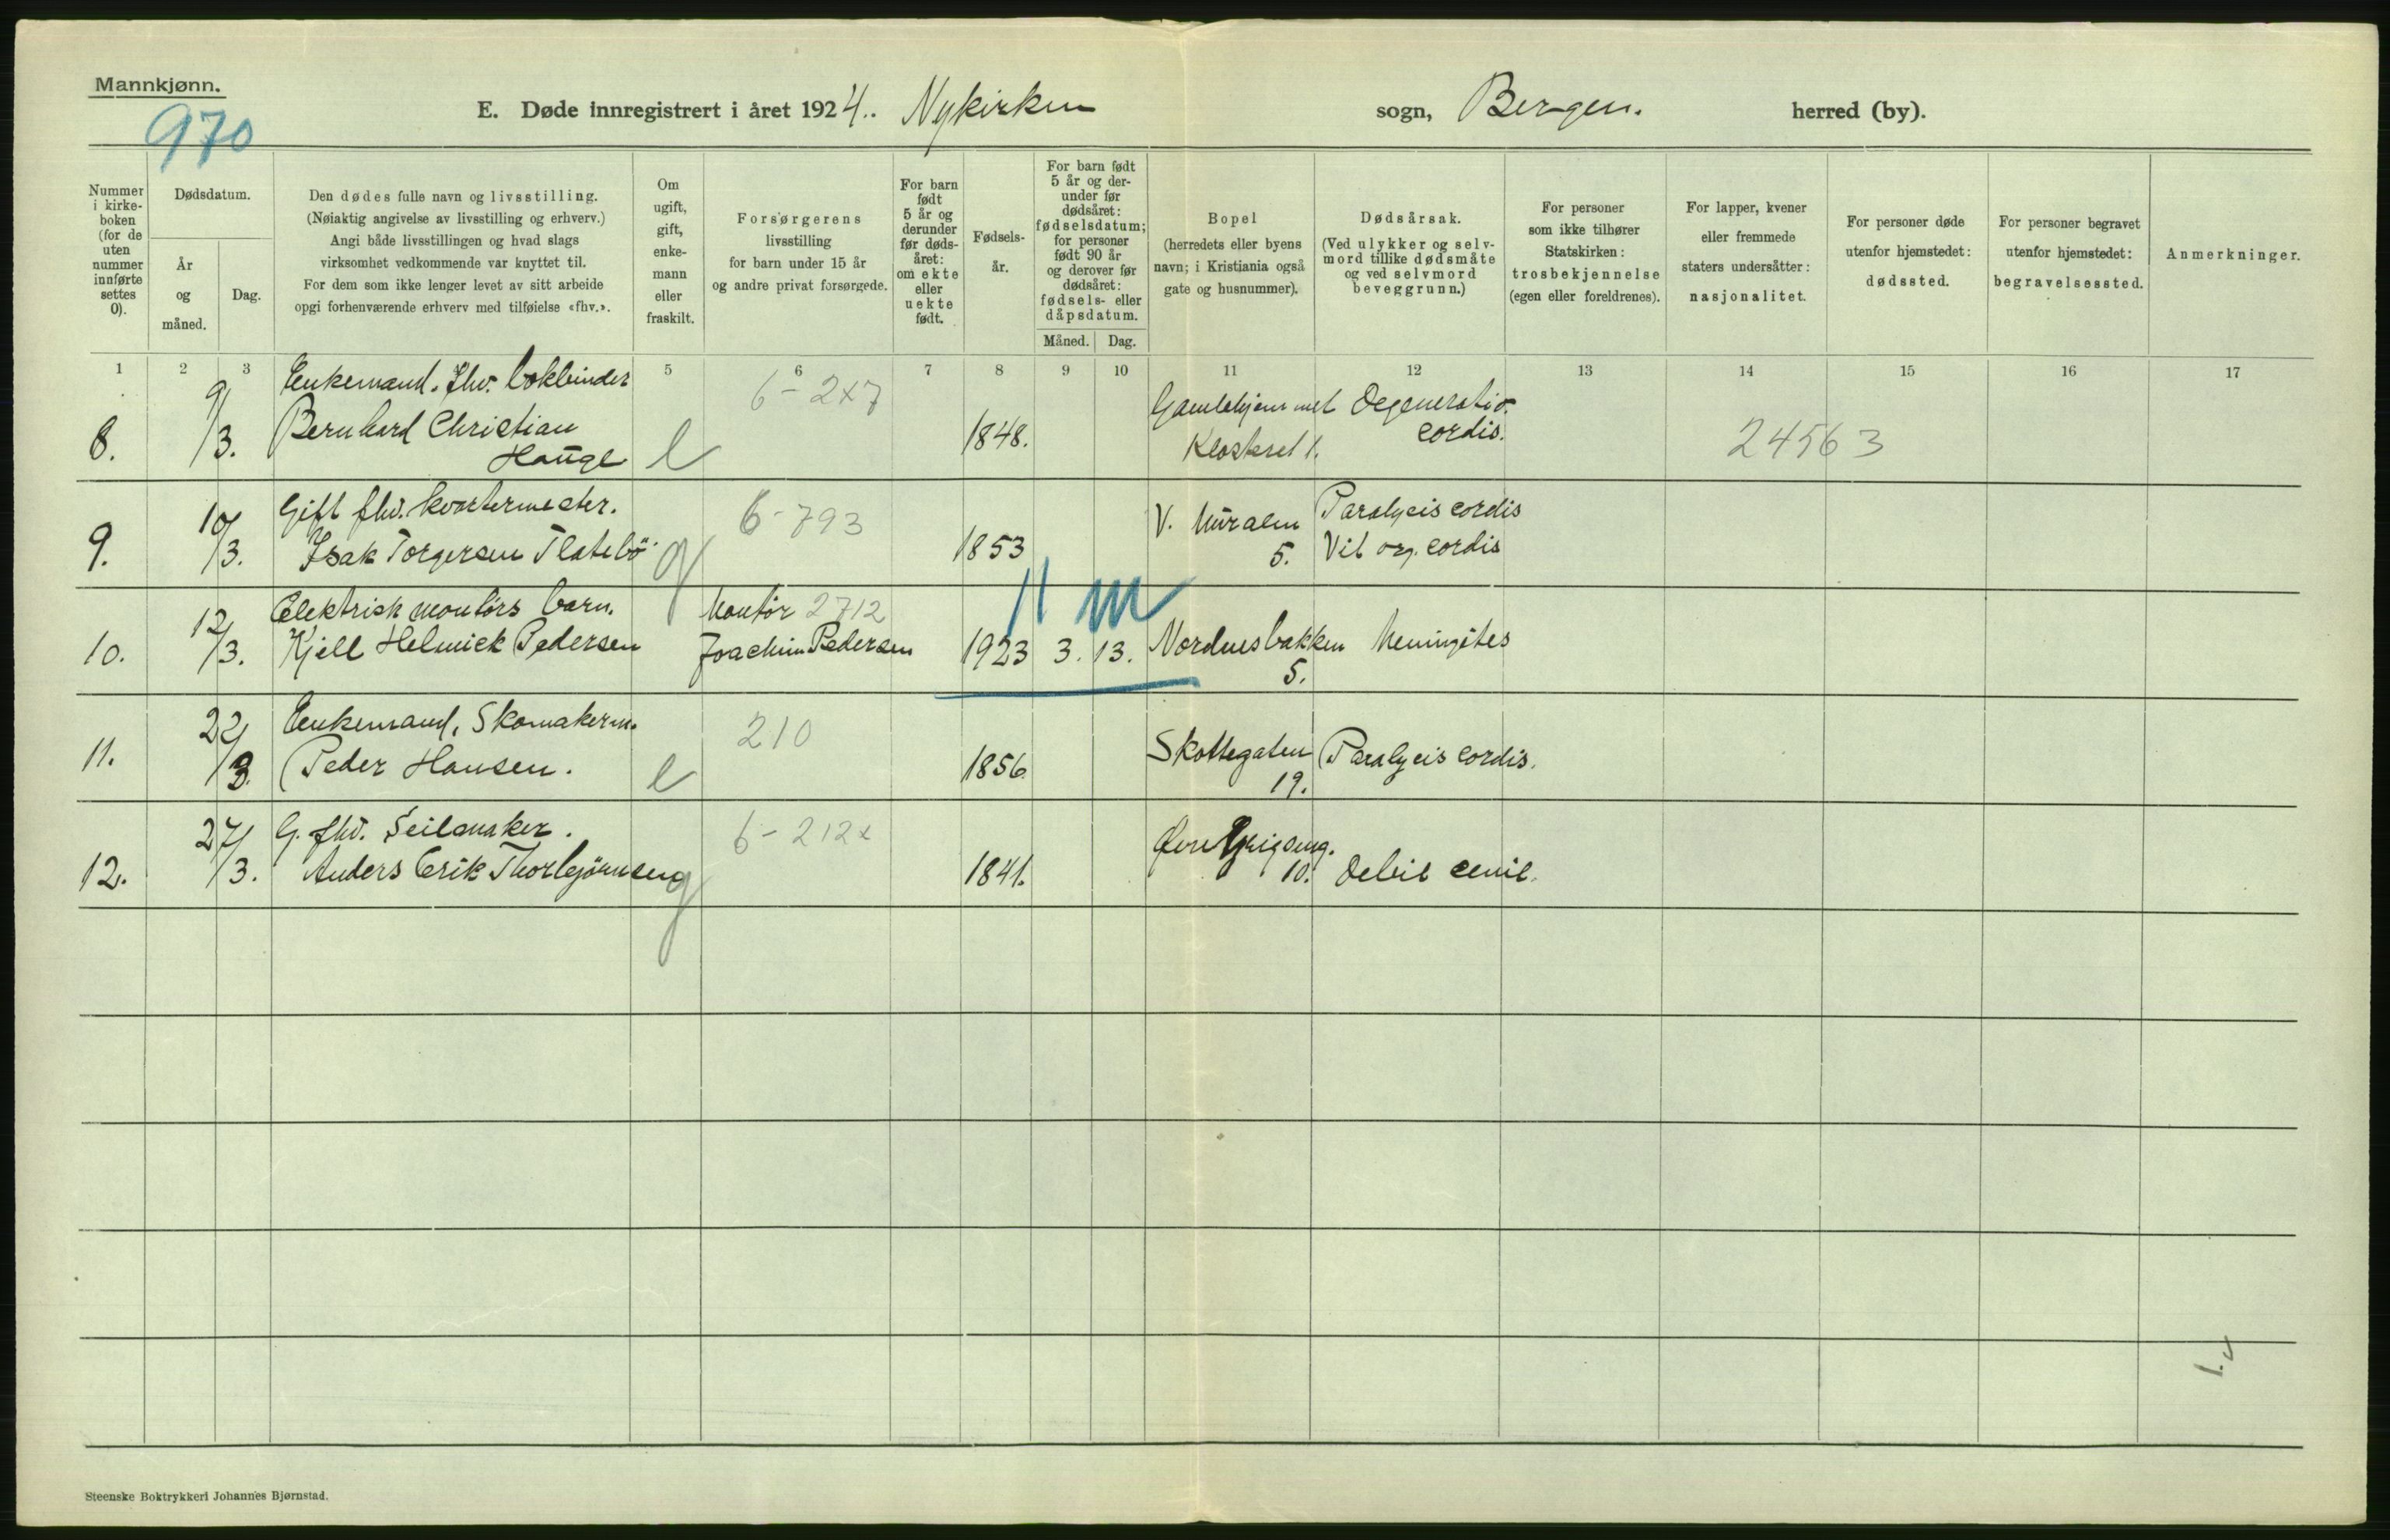 Mannkjønn.
970
E. Døde innregistrert i året 1924. Nykirken sogn, Bergen. herred (by).
Nummer i kirke- boken (for de uten nummer innførte settes 0).
Dødsdatum.
År og måned.
Dag.
Den dødes fulle navn og livsstilling.
(Nøiaktig angivelse av livsstilling og erhverv.)
Angi både livsstillingen og hvad slags
virksomhet vedkommende var knyttet til.
For dem som ikke lenger levet av sitt arbeide
opgi forhenværende erhverv med tilføielse «fhv.».
Om ugift, gift, enke- mann eller fraskilt.
Forsørgerens
livsstilling
for barn under 15 år
og andre privat forsørgede.
For barn født 5 år og derunder før døds- året: om ekte eller uekte født.
Fødsels- år.
For barn født 5 år og der- under før dødsåret: fødselsdatum; for personer født 90 år og derover før dødsåret: fødsels- eller dåpsdatum.
Måned. Dag.
Bopel
(herredets eller byens
navn; i Kristiania også
gate og husnummer).
Dødsårsak.
(Ved ulykker og selv-
mord tillike dødsmåte
og ved selvmord
beveggrunn.)
For personer
som ikke tilhører
Statskirken:
trosbekjennelse
(egen eller foreldrenes).
For lapper, kvener
eller fremmede
staters undersåtter:
nasjonalitet.
For personer døde
utenfor hjemstedet:
dødssted.
For personer begravet
utenfor hjemstedet:
begravelsessted.
Anmerkninger.
1 2 3 5 6 7 8 9 10 11 12 13 14 15 16 17
Enkemand. fhv. bokbinder 6-2x7
8. 9/3. Bernhard Christian Hauge e 1848. Gamlehjemmet Klosteret 1. Degeneratio cordis. 24563
Gift fhv. kvartermester. 6-793
9. 10/3. Isak Torgersen Flatebö g 1853 V. Muralm 5. Paralysis cordis Vit org. cordis
11 m
Elektrisk montörs barn. Montör 2712
10. 12/3. Kjell Helmick Pedersen Joachim Pedersen 1923 3. 13. Nordnesbakken 5. Meningites
Enkemand, Skomakerm. 210
11. 22/3. Peder Hansen. e 1856 Skottegaten 19. Paralysis cordis.
G. fhv. Seilmaker. 6-212x
12. 27/3. Anders Erik Thorbjörnsen g 1841. 10. Debil senil.
1.
Steenske Boktrykkeri Johannes Bjørnstad.